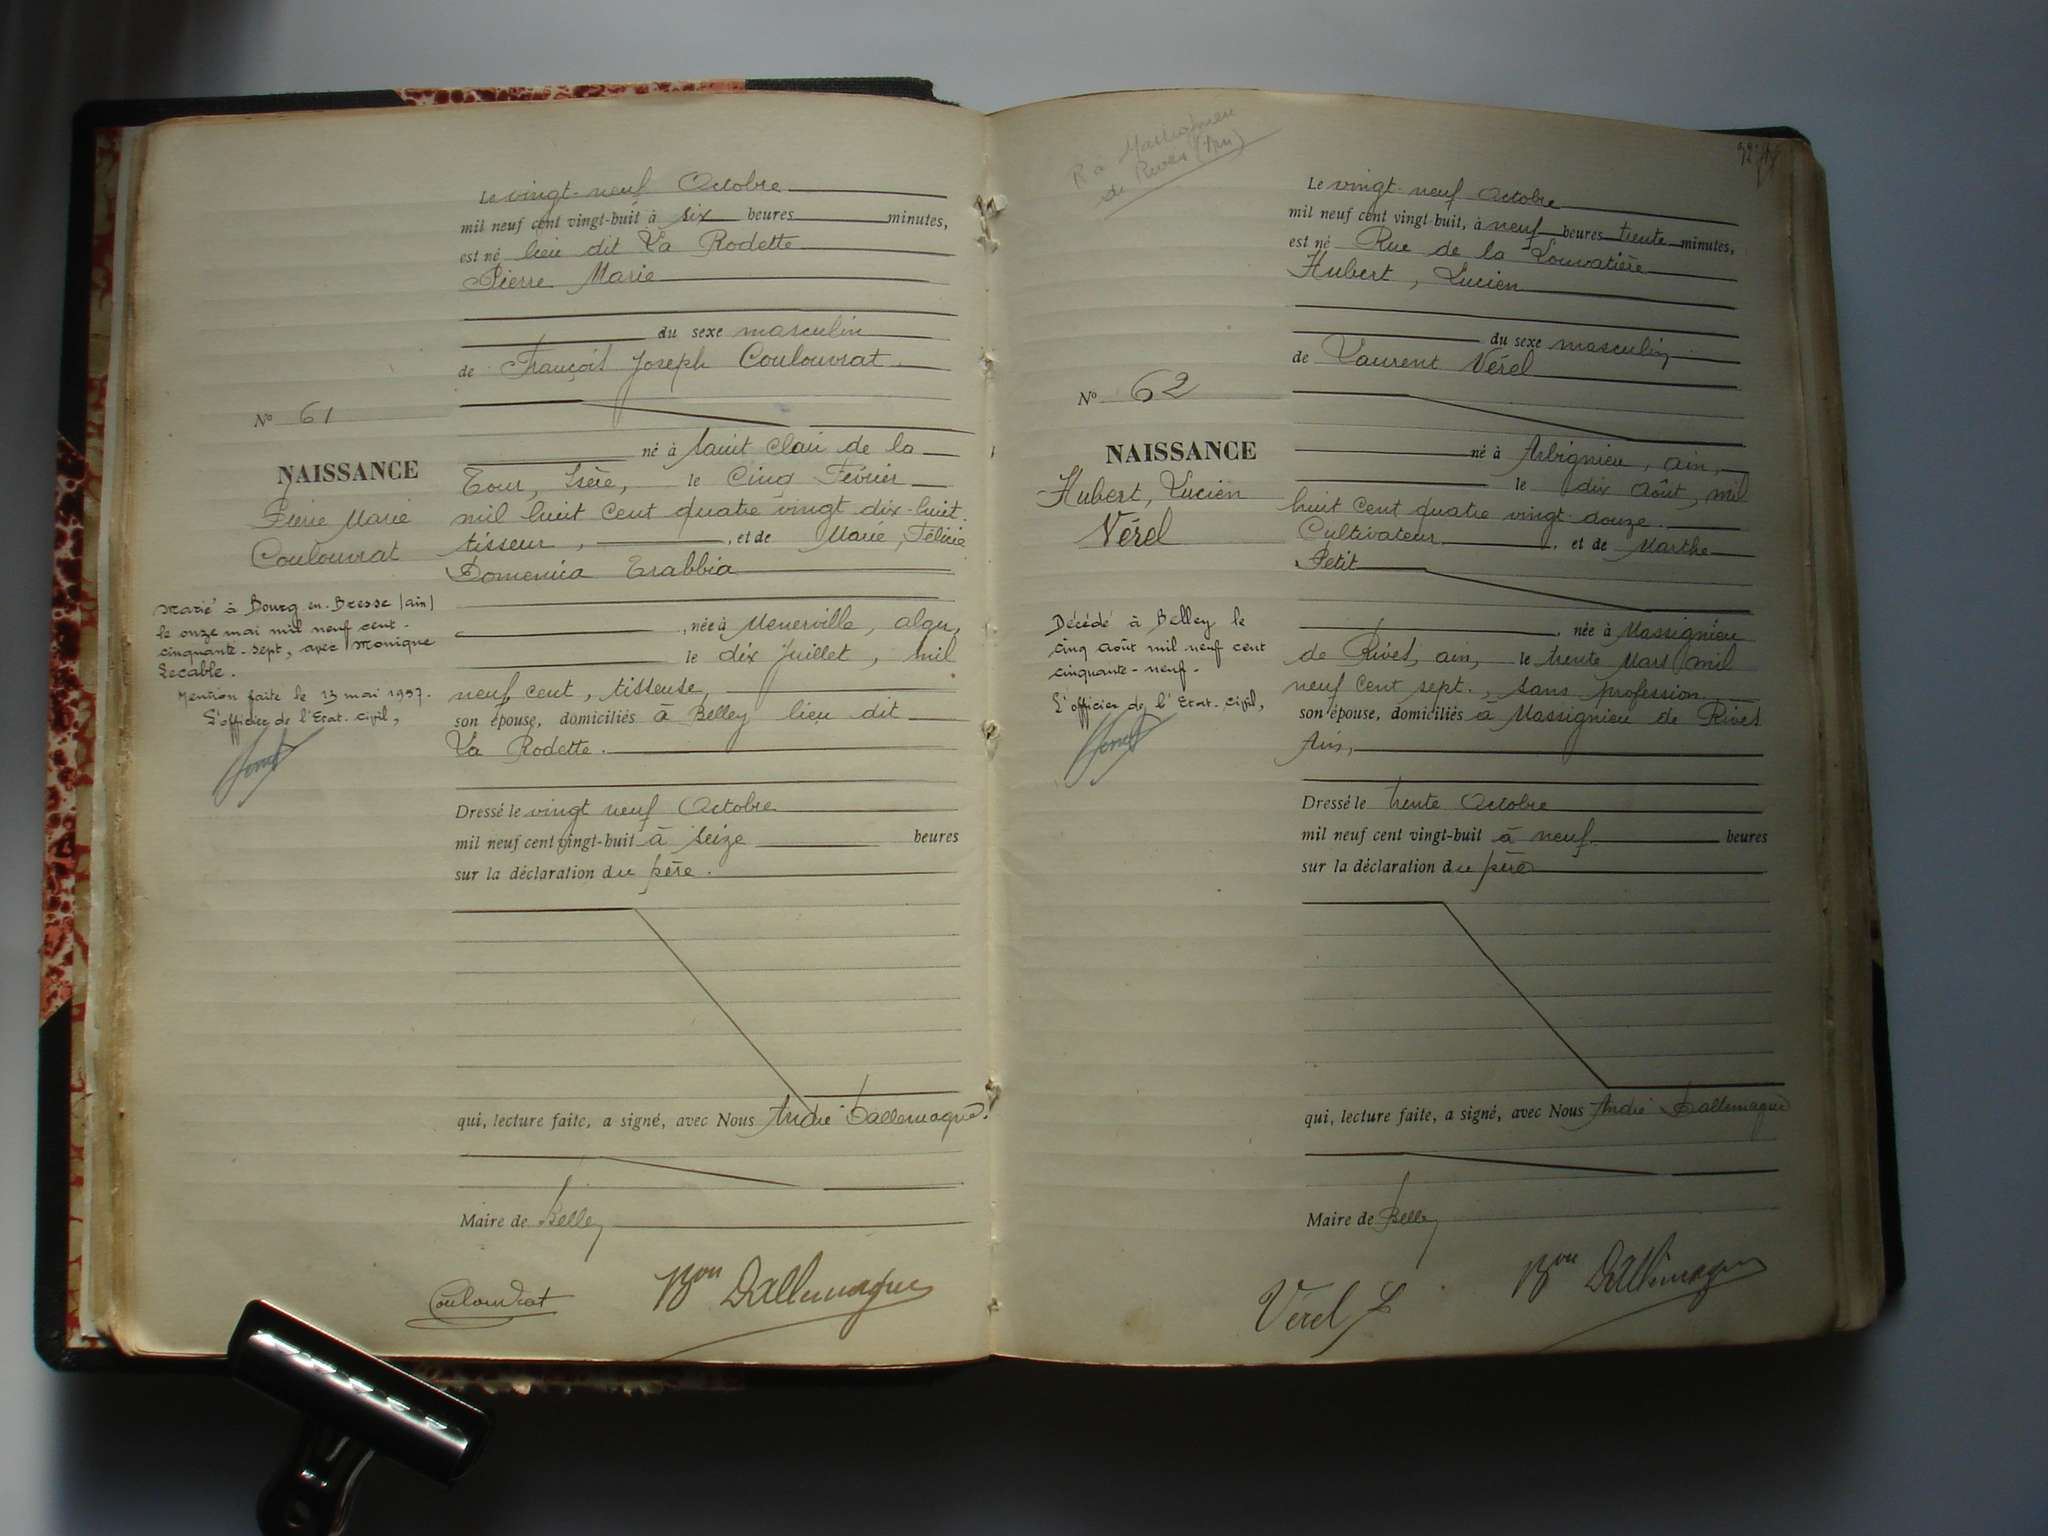 Le vingt-neuf Octobre
mil neuf cent vingt-huit à six heures minutes,
est né lieu dit La Rodette
Pierre Marie
du sexe masculin
de François Joseph Coulouvrat
N° 61
né à Saint Clair de la
NAISSANCE
Tour, Isère, le Cinq Février
Pierre Marie
mil huit cent quatre vingt dix-huit.
Coulouvrat
tisseur, , et de Marie, Félicie
Domenica Trabbia
Marié à Bourg en-Bresse (ain)
le onze mai mil neuf cent-
cinquante-sept, avec Monique
Lecable.
Mention faite le 13 mai 1957.
L'officier de l'Etat-civil,
, née à Menerville, algr,
le dix Juillet, mil
neuf cent, tisseuse,
son épouse, domiciliés à Belley lieu dit
La Rodette.
Dressé le vingt neuf Octobre
mil neuf cent vingt-huit à seize heures
sur la déclaration du père.
qui, lecture faite, a signé, avec Nous André Dallemagne.
Maire de Belley
Coulouvrat Bon Dallemagne
R à Massignieu
de Rives (Ain)
Le vingt-neuf Octobre
mil neuf cent vingt-huit, à neuf heures trente minutes,
est né Rue de la Louvatière
Hubert, Lucien
du sexe masculin
de Laurent Vérel
N° 62
né à Arbignieu, ain,
NAISSANCE
le dix Août, mil
Hubert, Lucien
huit cent quatre vingt-douze.
Vérel
Cultivateur , et de Marthe
Petit
Décédé à Belley le
cinq août mil neuf cent
cinquante-neuf-
L'officier de l'Etat-civil,
, née à Massignieu
de Rives, ain, le trente Mars mil
neuf cent sept., sans profession
son épouse, domiciliés à Massignieu de Rives
Ain,
Dressé le trente Octobre
mil neuf cent vingt-huit à neuf heures
sur la déclaration du père
qui, lecture faite, a signé, avec Nous André Dallemagne
Maire de Belley
Vérel L Bon Dallemagne